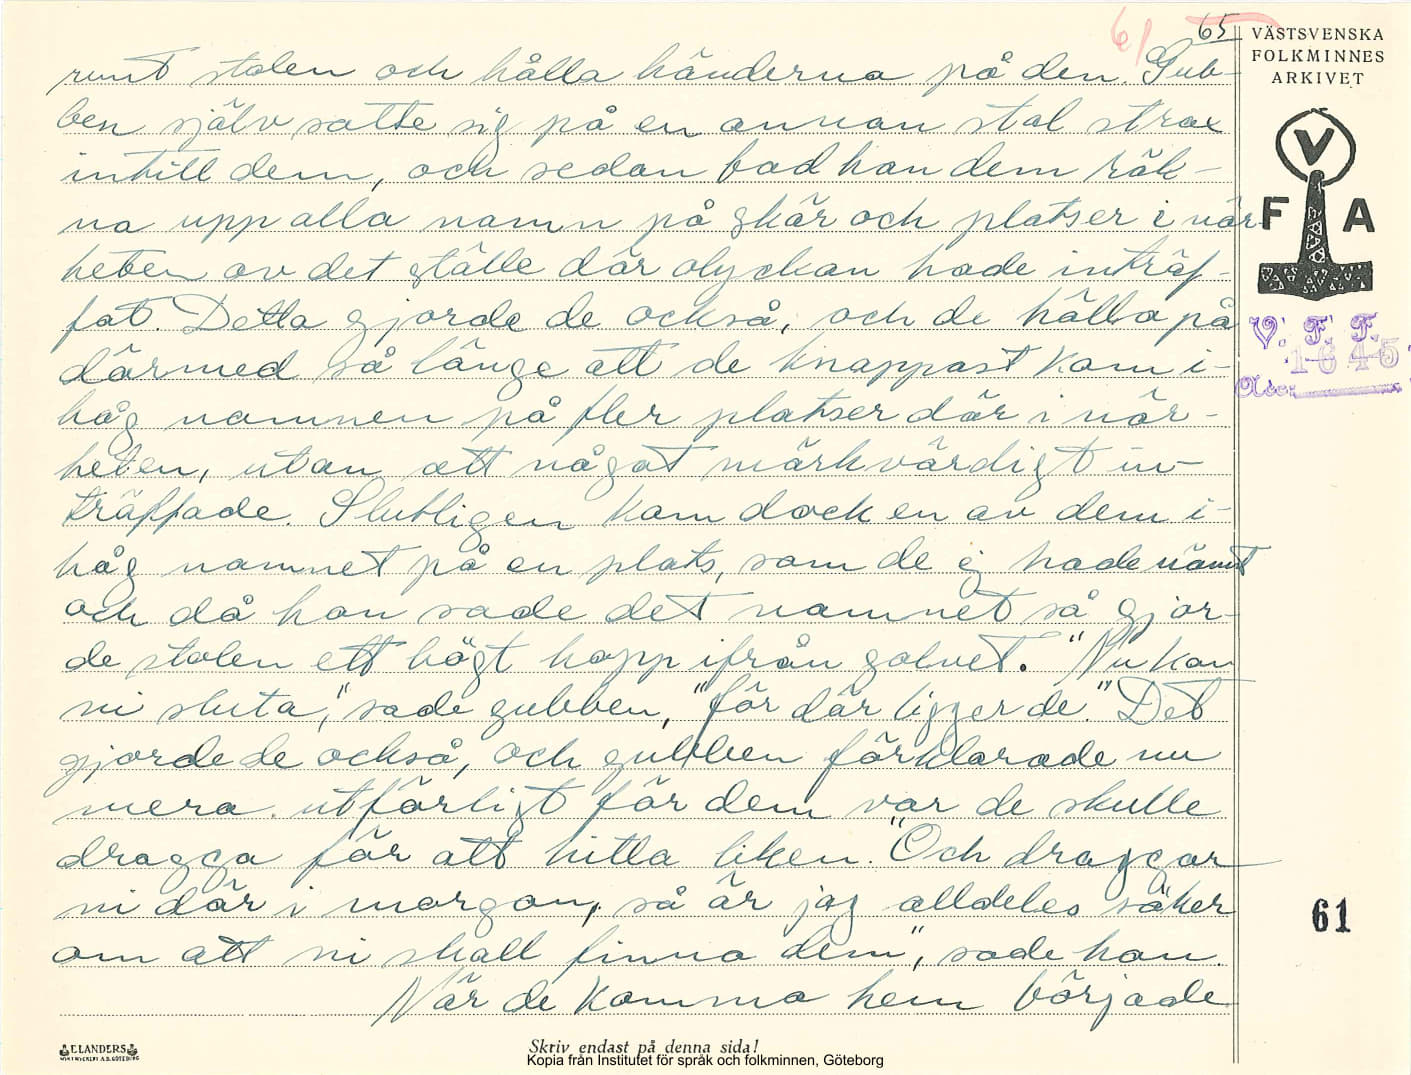 61 65
VÄSTSVENSKA
FOLKMINNES
ARKIVET
runt stolen och hålla händerna på den. Gub-
ben själv satte sig på en annan stol strax
intill dem, och sedan bad han dem räk-
na upp alla namn på skär och platser i när-
heten av det ställe där olyckan hade inträf-
fat. Detta gjorde de också, och de hålla på
därmed så länge att de knappast kom i-
håg namnen på fler platser där i när-
heten, utan att något märkvärdigt in-
träffade. Slutligen kom dock en av dem i-
håg namnet på en plats, som de ej hade nämnt
och då han sade det namnet så gjor-
de stolen ett högt hopp ifrån golvet. "Nu kan
ni sluta", sade gubben, "för där ligger de." Det
gjorde de också, och gubben förklarade nu
mera utförligt för dem var de skulle
dragga för att hitta liken. "Och draggar
ni där i morgon, så är jag alldeles säker
om att ni skall finna dem", sade han.
När de komma hem började
V
F A
V. F. F.
1645
61
ELANDERS
Skriv endast på denna sida!
Kopia från Institutet för språk och folkminnen, Göteborg